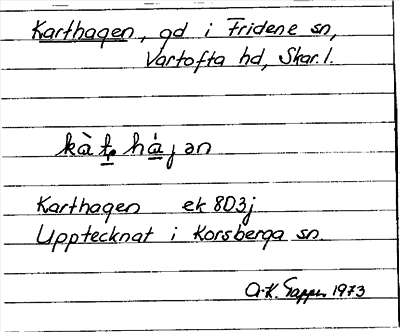 Karthagen, gd i Fridene sn,
Vartofta hd, Skar. l.
kàt hájən
Karthagen ek 8D3j
Upptecknat i Korsberga sn.
A-K. 1973